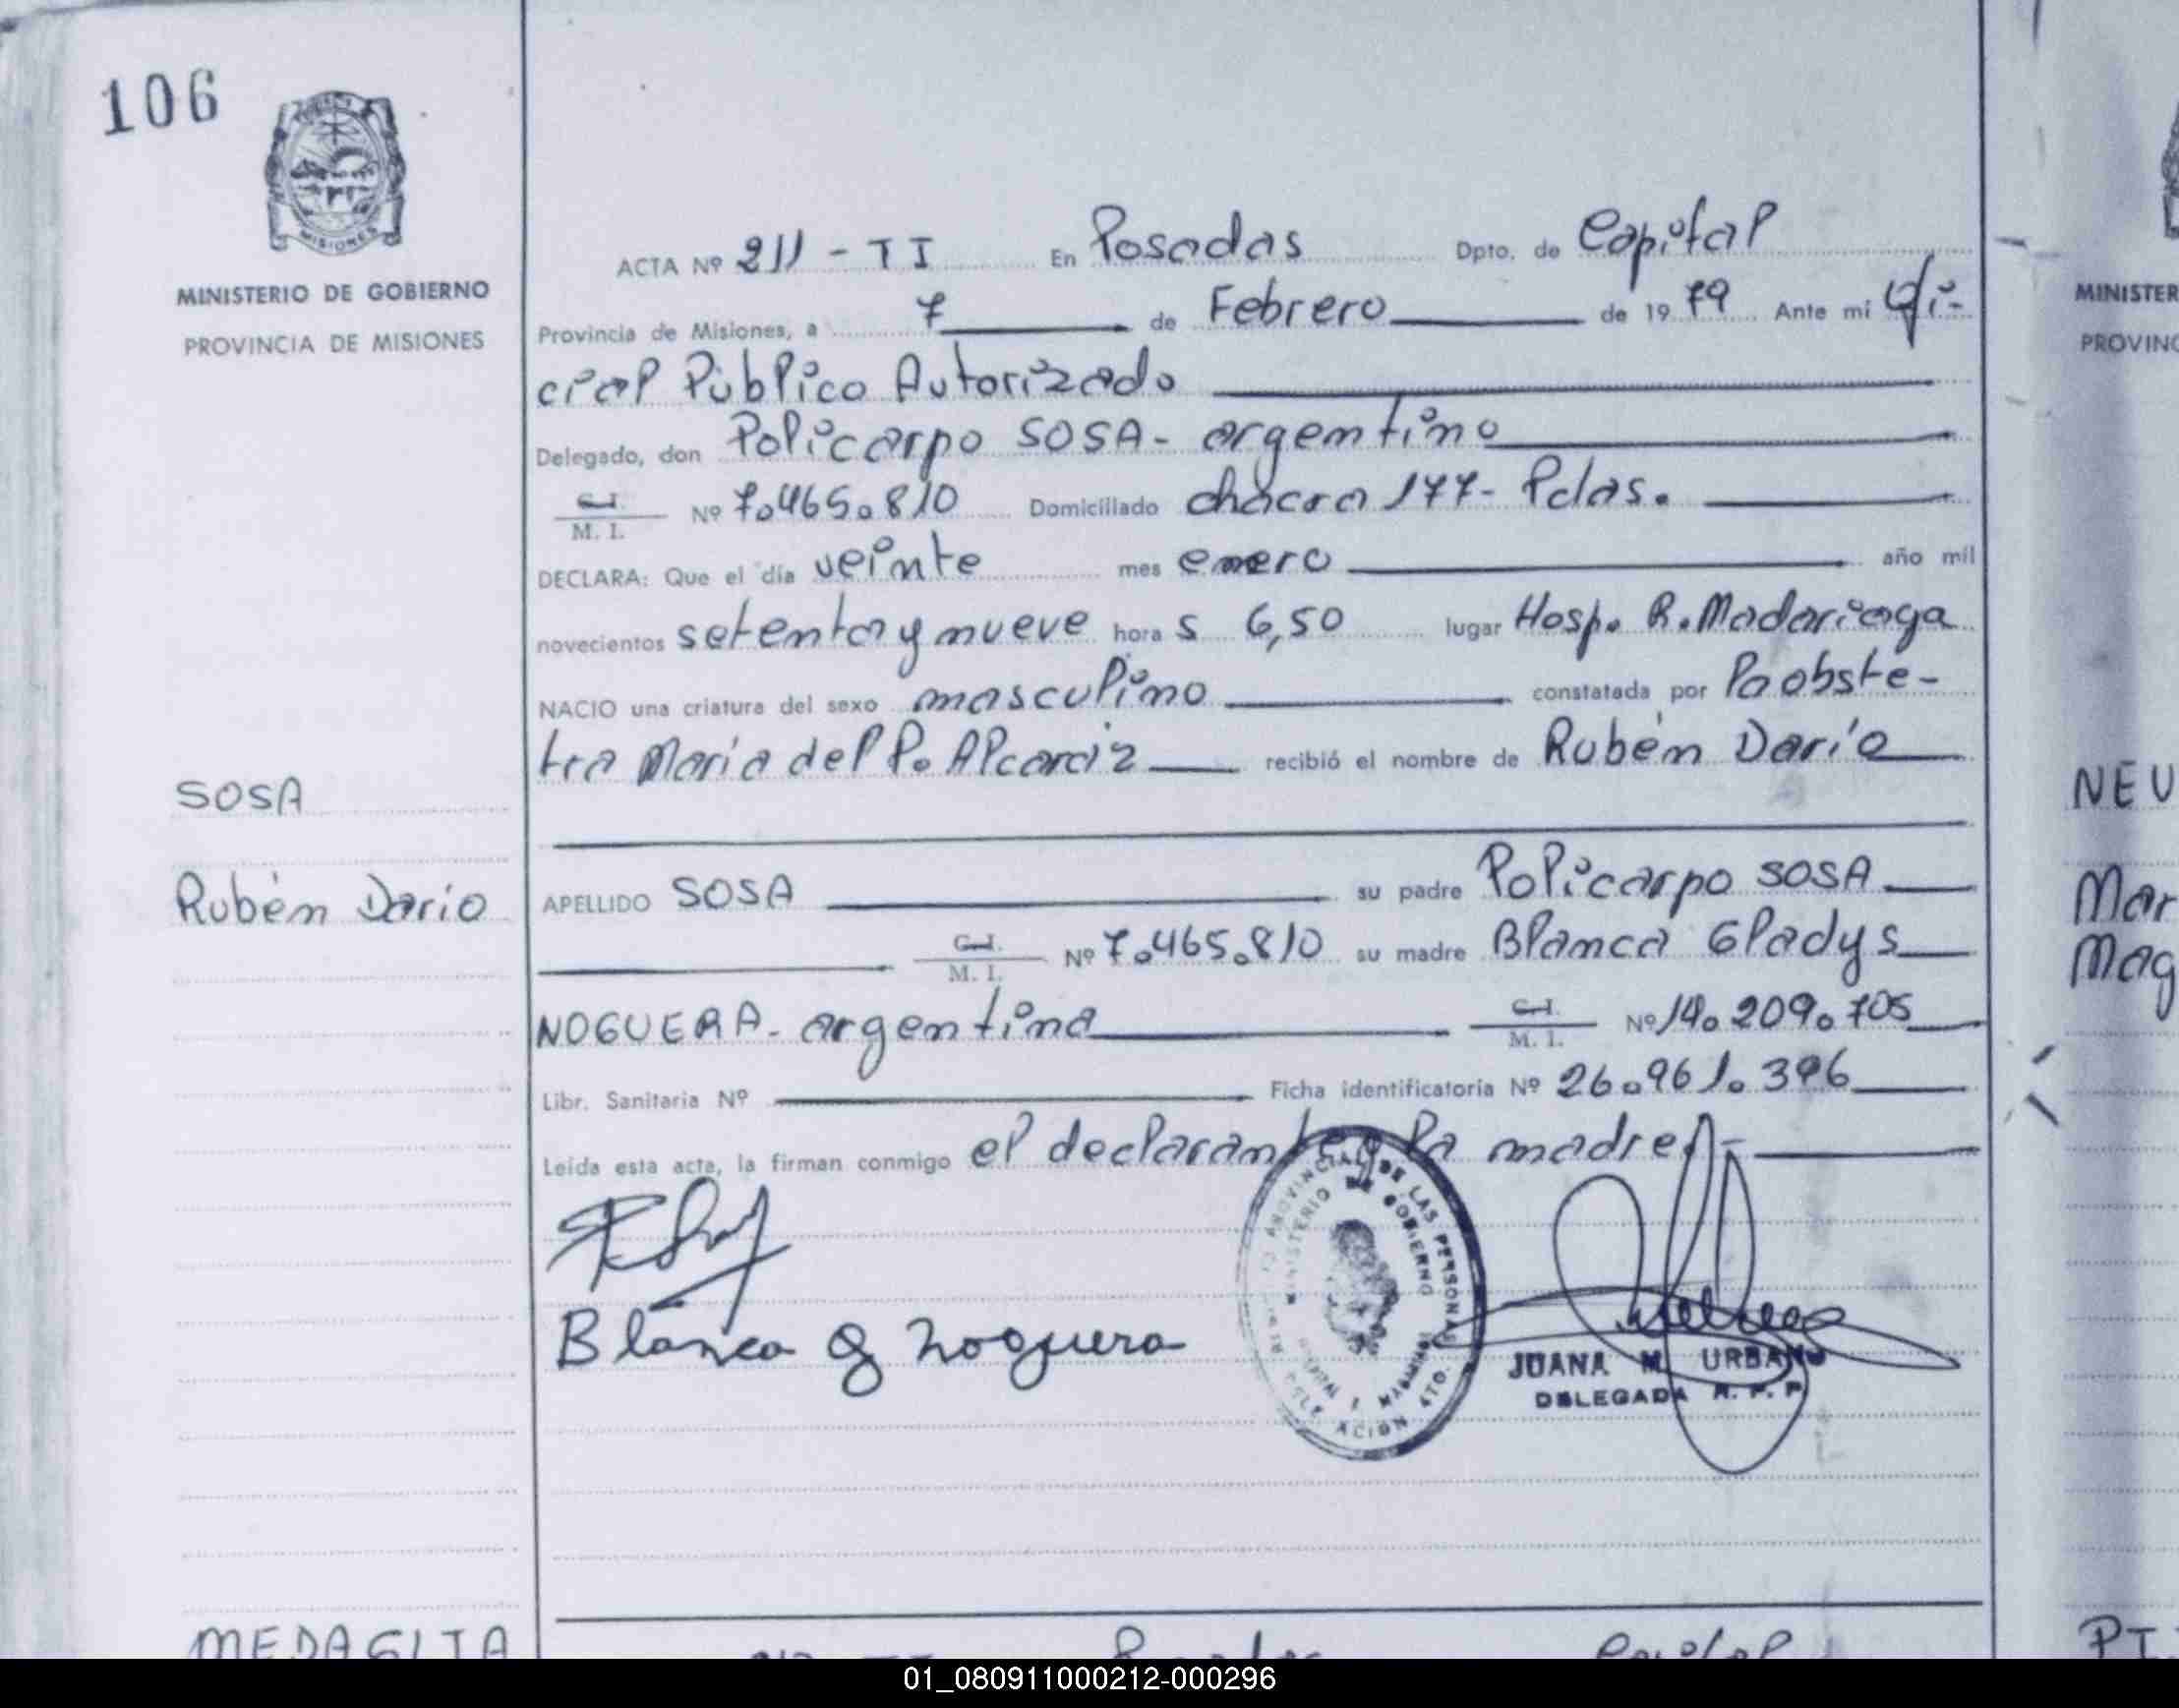 106
MISIONES
MINISTERIO DE GOBIERNO
PROVINCIA DE MISIONES
ACTA Nº 211 - TI En Posadas Dpto. de Capital
Provincia de Misiones, a 7 de Febrero de 19 79 Ante mi Ofi-
cial Público Autorizado
Delegado, don Policarpo SOSA - argentino
C.I. M. I. Nº 7.465.810 Domiciliado chacra 177 - Pdas.
DECLARA: Que el día veinte mes enero año mil
novecientos setenta y nueve hora s 6,50 lugar Hosp. R. Madariaga
NACIO una criatura del sexo masculino constatada por la obste-
tra María del P. Alcaraz recibió el nombre de Rubén Darío
SOSA
Rubén Darío
APELLIDO SOSA su padre Policarpo SOSA
C.I. M. I. Nº 7.465.810 su madre Blanca Gladys
NOGUERA - argentina C.I. M. I. Nº 14.209.705
Libr. Sanitaria Nº Ficha identificatoria Nº 26.961.396
Leída esta acta, la firman conmigo el declarante y la madre.-
Blanca G Noguera
PROVINCIAL DE LAS PERSONAS
MINISTERIO DE GOBIERNO
DELEGACION 4TO.
JUANA M. URBANO
DELEGADA R. P. P
MEDAGLIA
Posadas Capital
MINISTER
PROVINC
NEU
Mar
Mag
PI
01_080911000212-000296